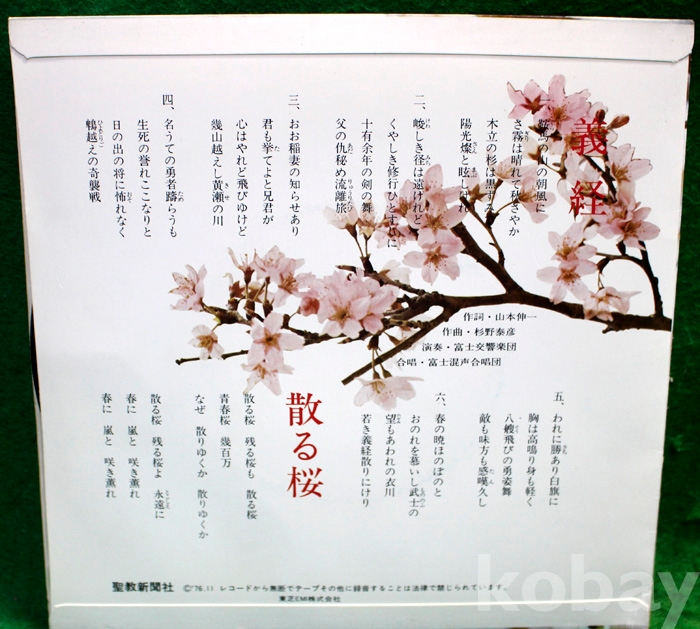 義経
さ霧は晴れて
木立の杉は黒ずみ
陽光燦と眩しけれ
二、峻しき径は遠けれど
くやしき修行ひとすじに
十有余年の剣の舞
父の仇秘め流離旅
三、おお稲妻の知らせあり
君も挙てよと兄君が
心はやれど飛びゆけど
幾山越えし黄瀬の川
四、名うての勇者躊らうも
生死の誉れここなりと
日の出の将に怖れなく
鵯越えの奇襲戦
作詞・山本伸一
作曲・杉野泰彦
演奏・富士交響楽団
合唱・富士混声合唱団
五、われに勝あり白旗に
胸は高鳴り身も軽く
八艘飛びの勇姿舞
敵も味方も感嘆久し
六、春の暁ほのぼのと
おのれを慕いし武士の
望もあわれの衣川
若き義経散りにけり
散る桜
散る桜 残る桜も 散る桜
青春桜 幾百万
なぜ 散りゆくか 散りゆくか
散る桜 残る桜よ 永遠に
春に 嵐と 咲き薫れ
春に 嵐と 咲き薫れ
聖教新聞社 Ⓒ'76.11 レコードから無断でテープその他に録音することは法律で禁じられています。
東芝EMI株式会社
kobay